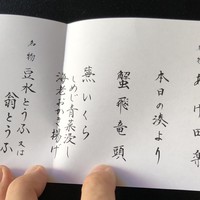 あげ田楽
本日の湊より
蟹飛竜頭
蒸いくら
しめじ青菜浸し
海老おかき揚げ
豆水とうふ又は
翁とうふ